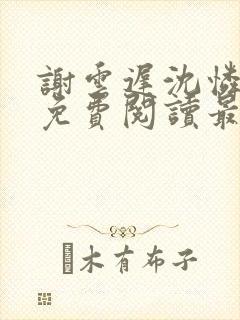 謝雲遲沈憐
免費閱讀最
木有布子